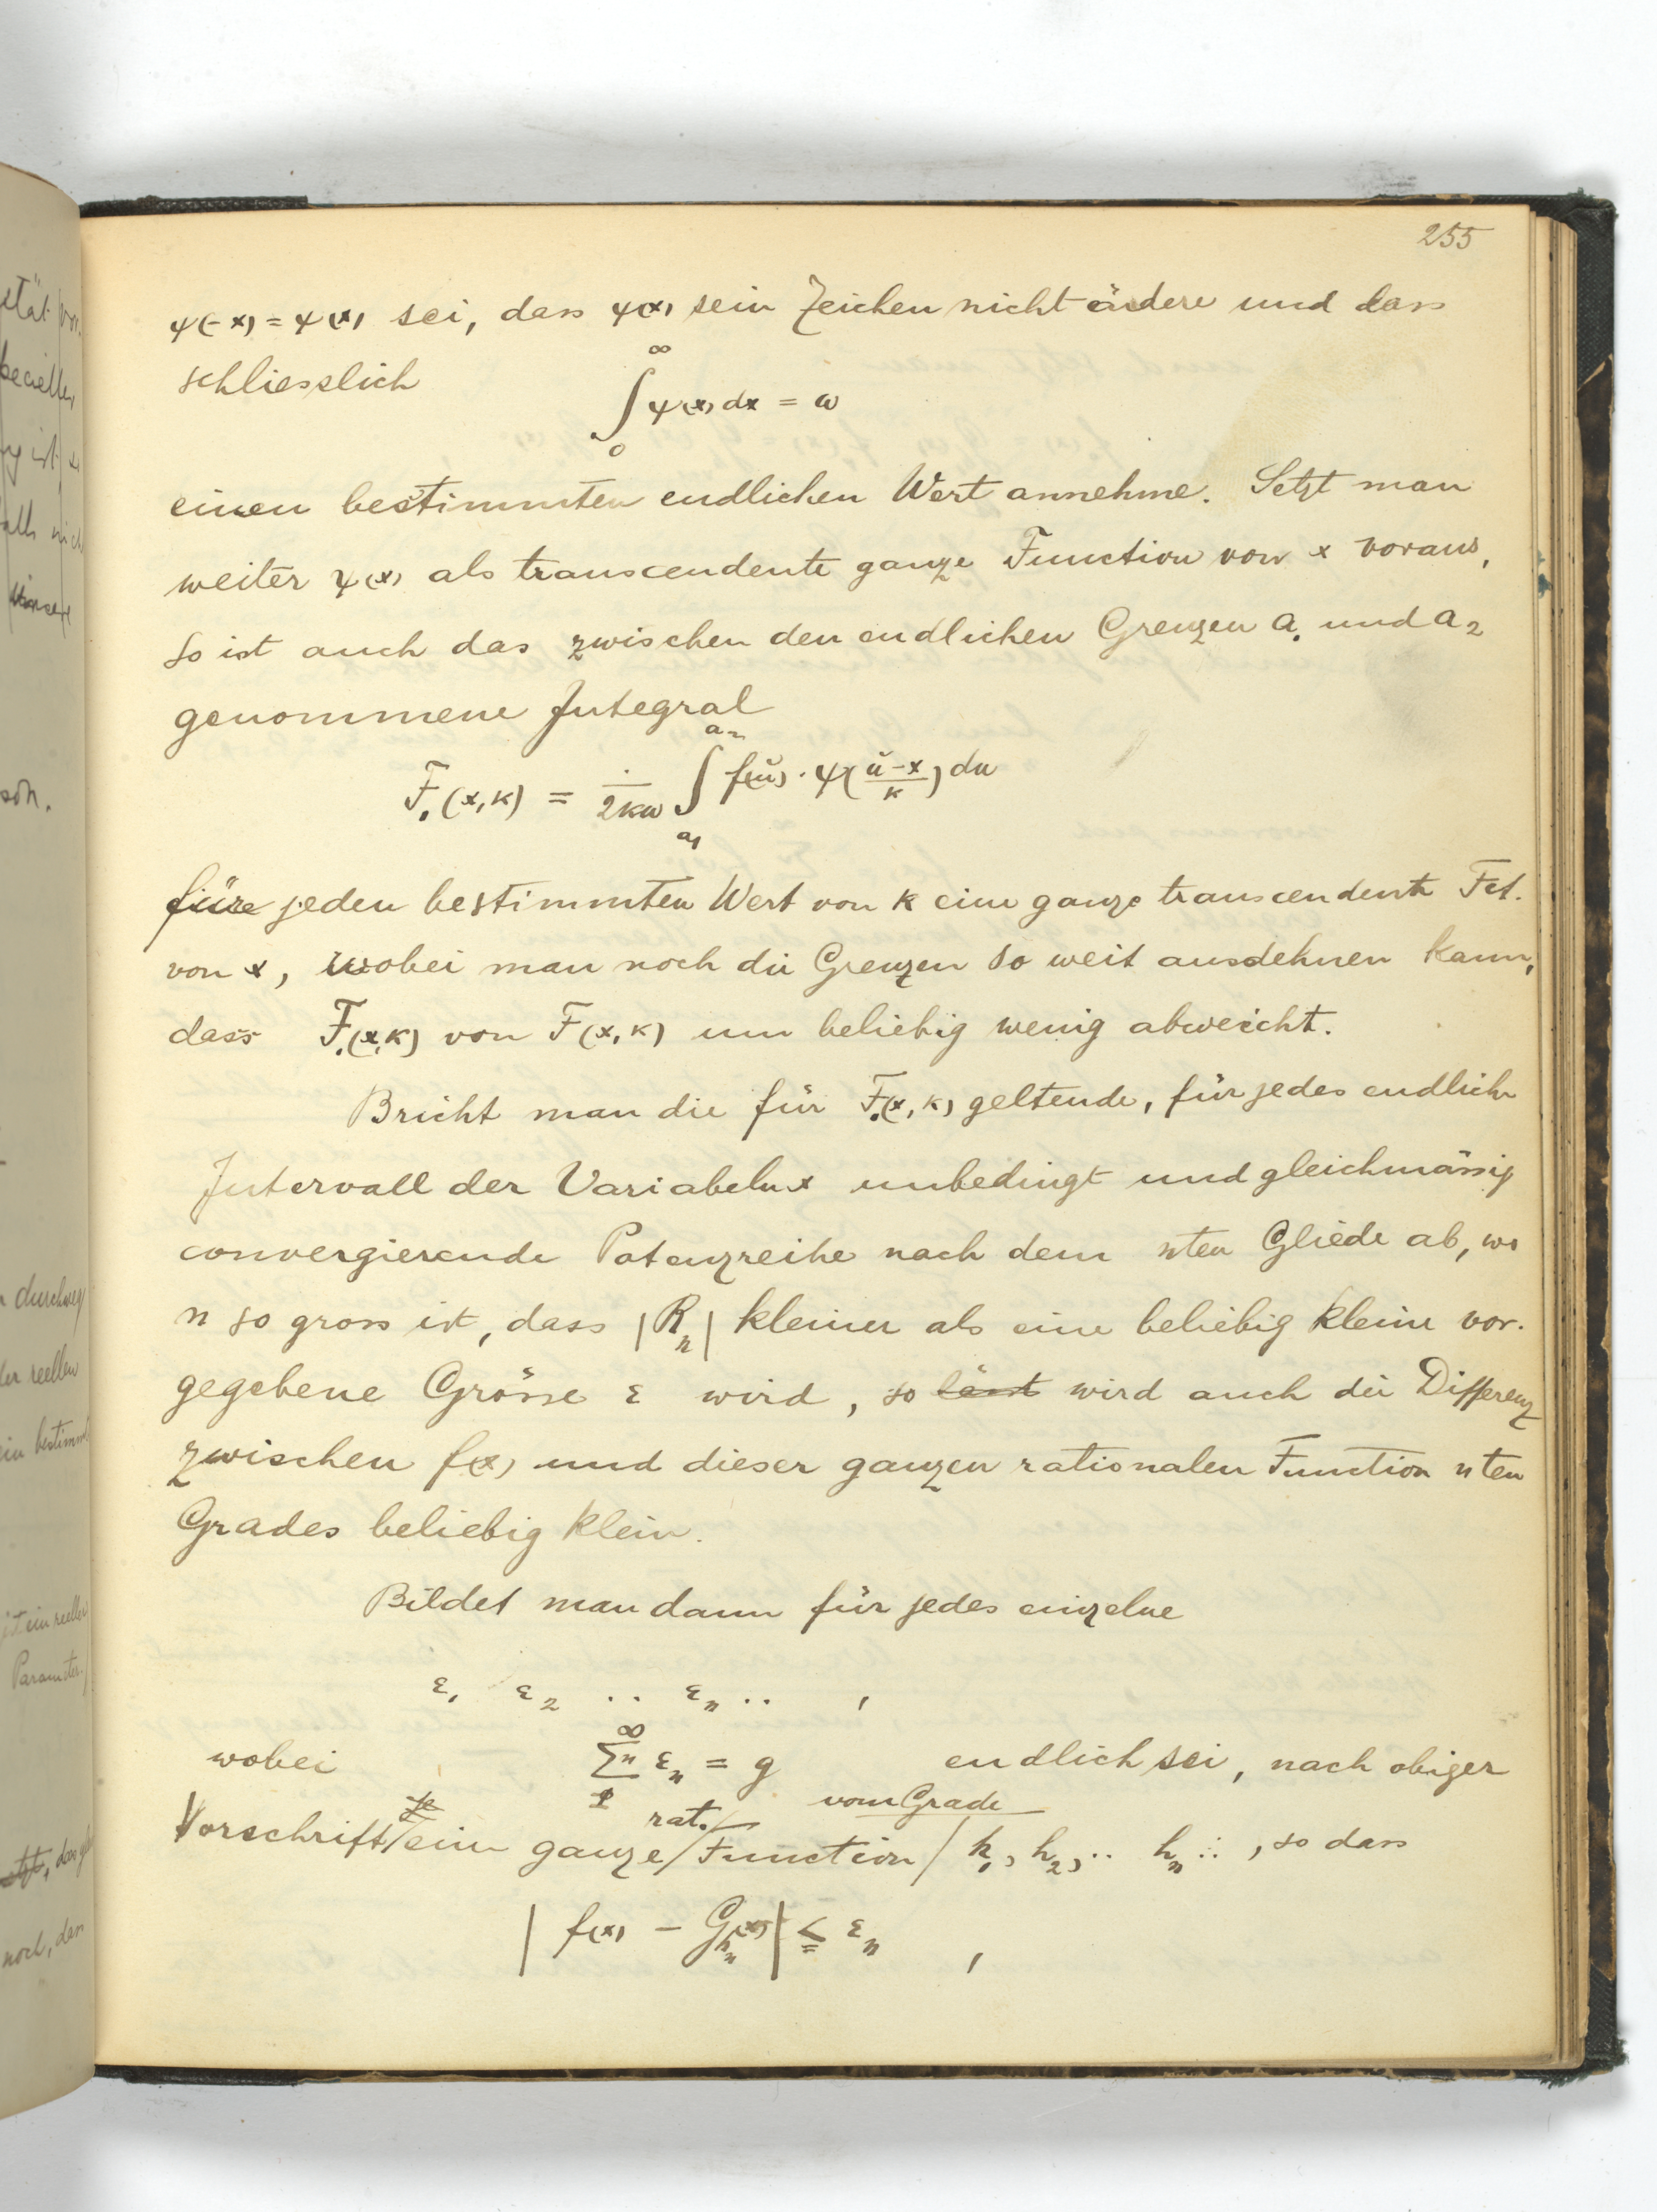 255
ψ(-x) = ψ(x) sei, dass ψ(x) sein Zeichen nicht ändere und dass
schliesslich
∫₀^∞ ψ(x) dx = ω
einen bestimmten endlichen Wert annehme. Setzt man
weiter ψ(x) als transcendente ganze Function von x voraus,
so ist auch das zwischen den endlichen Grenzen a₁ und a₂
genommene Integral
F₁(x,k) = 1/(2kω) ∫_{a₁}^{a₂} f(u) · ψ((u-x)/k) du
für jeden bestimmten Wert von k eine ganze transcendente Fct.
von x, wobei man noch die Grenzen so weit ausdehnen kann,
dass F₁(x,k) von F(x,k) um beliebig wenig abweicht.
Bricht man die für F₁(x,k) geltende, für jedes endliche
Intervall der Variabeln x unbedingt und gleichmässig
convergierende Potenzreihe nach dem nten Gliede ab, wo
n so gross ist, dass |Rₙ| kleiner als eine beliebig kleine vor-
gegebene Grösse ε wird, so lässt wird auch die Differenz
zwischen f(x) und dieser ganzen rationalen Function nten
Grades beliebig klein.
Bildet man dann für jedes einzelne
ε₁ ε₂ .. εₙ .. ,
wobei ∑₁^∞ₙ εₙ = g endlich sei, nach obiger
Vorschrift je eine ganze rat. Function vom Grade h₁, h₂, .. hₙ .. , so dass
| f(x) - G_{hₙ}(x) | ≦ εₙ ,